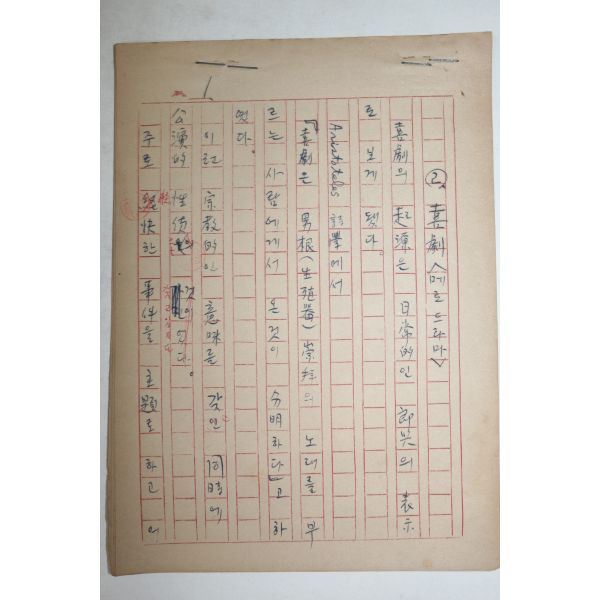 1.
2. 喜劇 <메로드라마>
喜劇의 起源은 日常的인 郎哭의 表示
로 보게 됐다.
Aristoteles 詩學에서
『喜劇은 男根(生殖器)崇拜의 노래를 부
르는 사람에게서 온 것이 分明하다』고 하
였다.
이런 宗敎的인 意味를 갖인 同時에
公演的 性质의 것이
주로 快한 事件을 主題로 하고 의